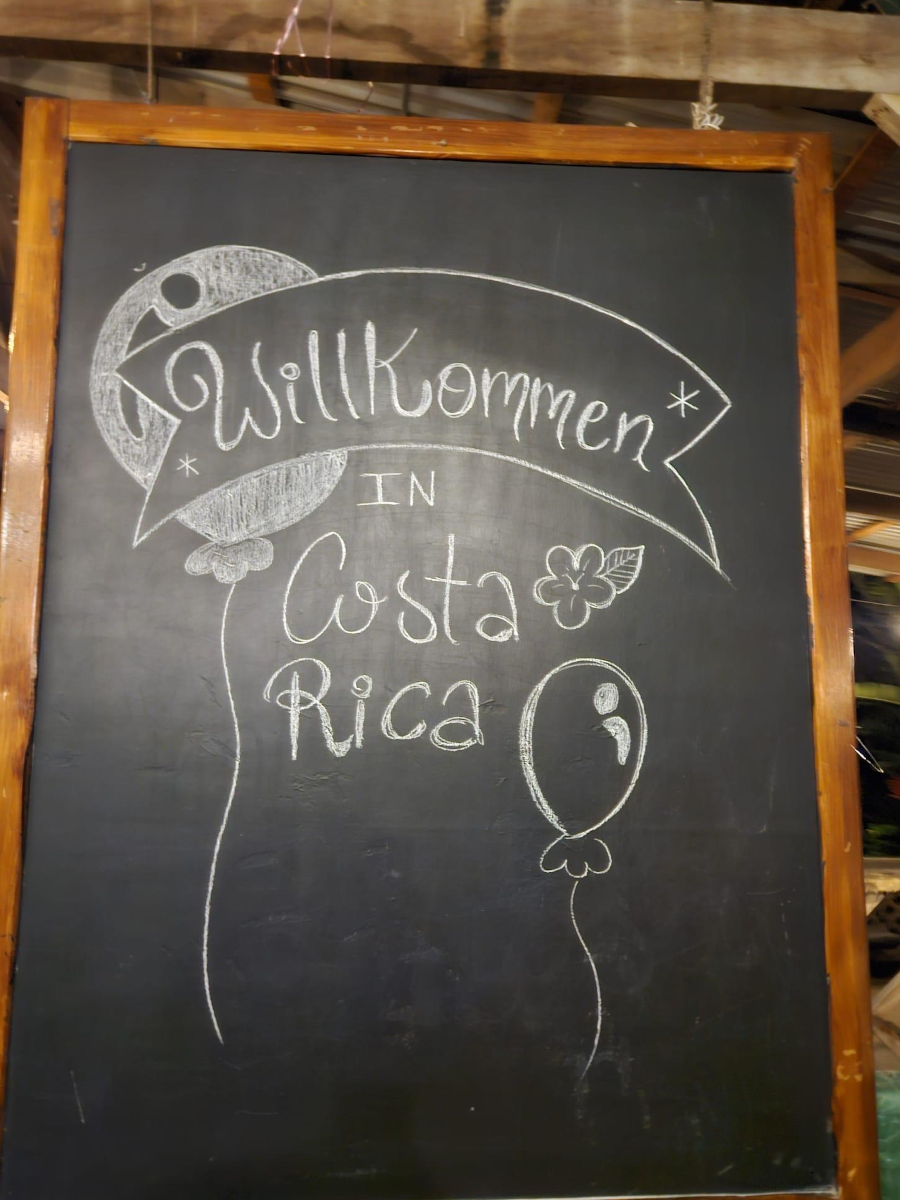 Willkommen
IN
Costa
Rica